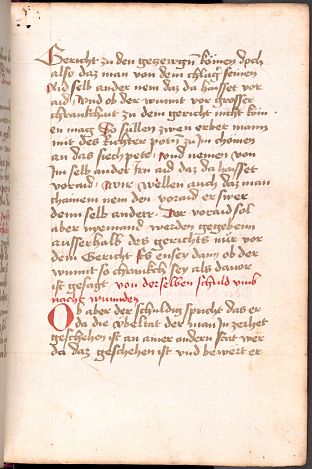 Gericht zu den gezewgen komen doch
also daz man von dem schlag seinen
Aid selb ander nem daz da haisset vor
aid Und ob der wunt vor grosser
chrankhait zu dem gericht nicht kom
en mag So sullen zwen erber mann
mit des Richter pot zu Im chomen
an das siechpete Und nemen von
Im selb ander ain aid daz da haisset
voraid Wir wellen auch daz man
chainem nem den voraid er swer
denn selb ander Der voraid sol
aber nyemand werden gegeben
ausserhalb des gerichts nur vor
dem Gericht Es ensey dann ob der
wunt so chrankh sey als dauor
ist gesagt von derselben schuld umb
nacht wunnden
Ob aber der schuldig spricht das er
da die ubeltat der man In zeihet
geschehen ist an ainer andern stat wer
da daz geschehen ist und bewert er